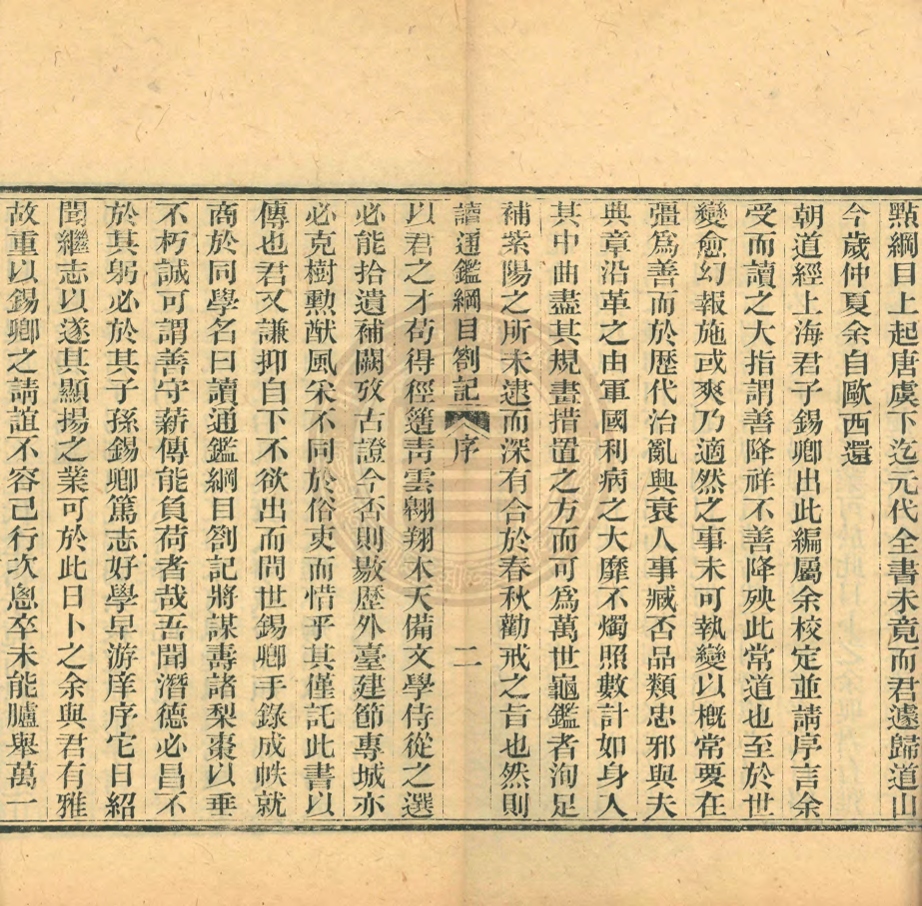 點綱目上起唐虞下迄元代全書未竟而君遽歸道山
今歲仲夏余自歐西還
朝道經上海君子錫卿出此編屬余校定並請序言余
受而讀之大指謂善降祥不善降殃此常道也至於世
變愈幻報施或爽乃適然之事未可執變以概常要在
彊爲善而於歷代治亂興衰人事臧否品類忠邪與夫
典章沿革之由軍國利病之大靡不燭照數計如身入
其中曲盡其規畫措置之方而可爲萬世龜鑑者洵足
補紫陽之所未逮而深有合於春秋勸戒之旨也然則
讀通鑑綱目劄記 序 二
以君之才苟得徑簉靑雲翱翔木天備文學侍從之選
必能拾遺補闕攷古證今否則敭歷外臺建節專城亦
必克樹勲猷風采不同於俗吏而惜乎其僅託此書以
傳也君又謙抑自下不欲出而問世錫卿手錄成帙就
商於同學名曰讀通鑑綱目劄記將謀壽諸梨棗以垂
不朽誠可謂善守薪傳能負荷者哉吾聞潛德必昌不
於其躬必於其子孫錫卿篤志好學早游庠序它日紹
聞繼志以遂其顯揚之業可於此日卜之余與君有雅
故重以錫卿之請誼不容已行次悤卒未能臚舉萬一